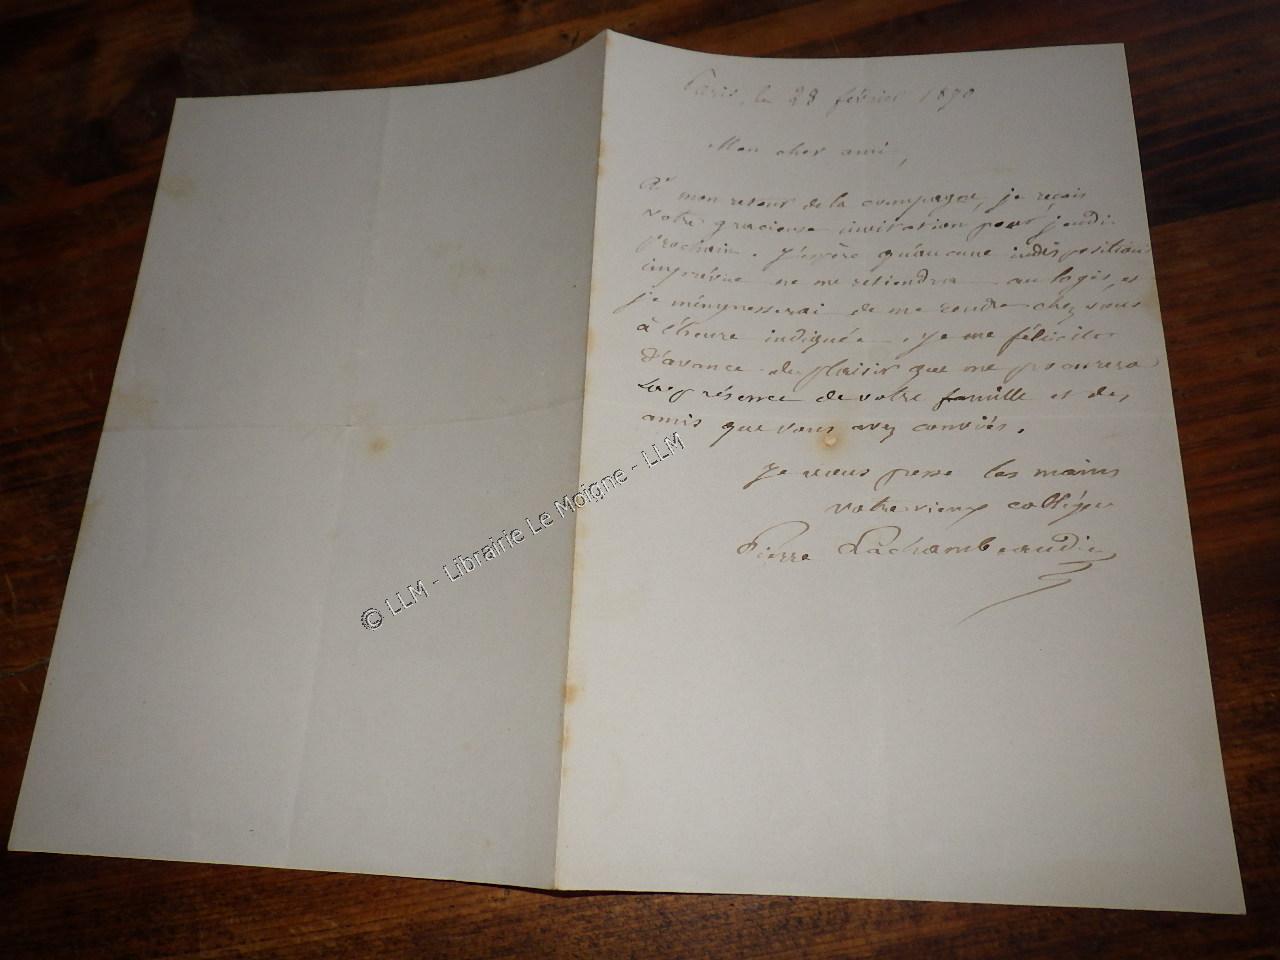 Paris, le 28 février 1870
Mon cher ami,
A mon retour de la campagne, je reçois
votre gracieuse invitation pour jeudi
prochain. J'espère qu'aucune indisposition
imprévue ne me retiendra au logis, et
je m'empresserai de me rendre chez vous
à l'heure indiquée. Je me félicite
d'avance du plaisir que me procurera
la présence de votre famille et des
amis que vous avez conviés.
Je vous presse les mains
votre vieux collègue
Pierre Lachambeaudie
© LLM - Librairie Le Moigne - LLM